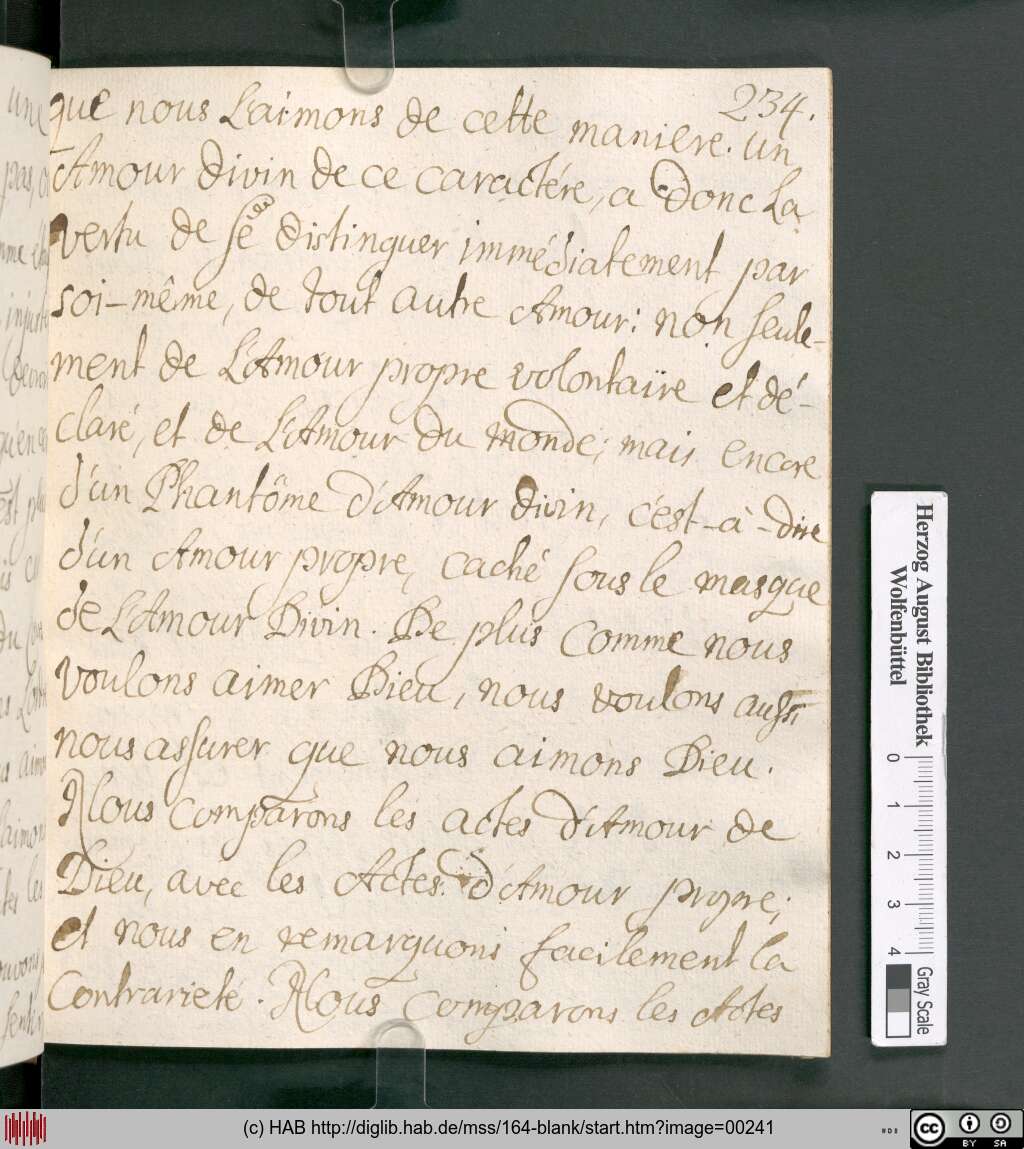 234.
que nous L'aimons de cette maniere. un
Amour divin de ce caractére, a donc La
vertu de se distinguer immédiatement par
soi-même, de tout autre Amour: non seule-
ment de L'Amour propre volontaire et dé-
claré, et de L'Amour du monde; mais encore
d'un Phantôme d'Amour divin, c'est-à-dire
d'un Amour propre, caché sous le masque
de L'Amour Divin. De plus comme nous
voulons aimer Dieu, nous voulons aussi
nous assurer que nous aimons Dieu.
Nous comparons les actes d'Amour de
Dieu, avec les Actes d'Amour propre;
et nous en remarquons facilement la
Contrarieté. Nous comparons les Actes
Herzog August Bibliothek
Wolfenbüttel
0 1 2 3 4
Gray Scale
(c) HAB http://diglib.hab.de/mss/164-blank/start.htm?image=00241
cc BY SA